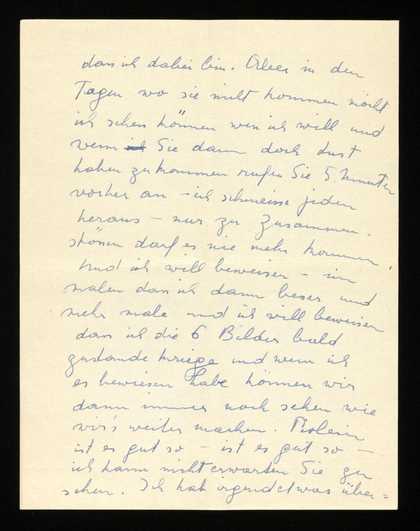 dass ich dabei bin. Aber in den
Tagen wo sie nicht kommen möcht
ich sehen können wen ich will und
wenn Sie dann doch Lust
haben zu kommen rufen Sie 5 Minuten
vorher an – ich schmeisse jeden
heraus – nur zu Zusammen-
stössen darf es nie mehr kommen.
Und ich will beweisen – im
malen dass ich dann besser und
mehr male und ich will beweisen
dass ich die 6 Bilder bald
zustande kriege und wenn ich
es bewiesen habe können wir
dann immer noch sehen wie
wir's weiter machen.
ist es gut so – ist es gut so –
ich kann nicht erwarten Sie zu
sehen. Ich hab irgendetwas über=